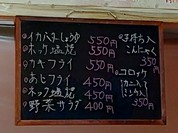 イカバタしょうゆ 550円
ホッケ塩焼 550円
カキフライ 550円
あじフライ 450円
ネック塩焼 450円
野菜サラダ 400円
子持ち
こんにゃく
350円
コロッケ
カニ入り
350円